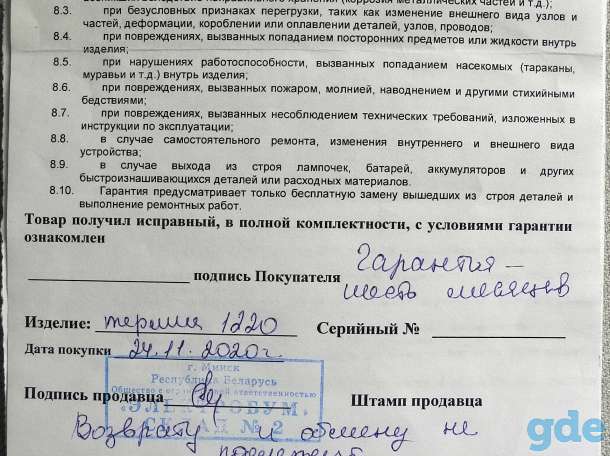 8.3. при безусловных признаках перегрузки, таких как изменение внешнего вида узлов и
частей, деформации, короблении или оплавлении деталей, узлов, проводов;
8.4. при повреждениях, вызванных попаданием посторонних предметов или жидкости внутрь
изделия;
8.5. при нарушениях работоспособности, вызванных попаданием насекомых (тараканы,
муравьи и т.д.) внутрь изделия;
8.6. при повреждениях, вызванных пожаром, молнией, наводнением и другими стихийными
бедствиями;
8.7. при повреждениях, вызванных несоблюдением технических требований, изложенных в
инструкции по эксплуатации;
8.8. в случае самостоятельного ремонта, изменения внутреннего и внешнего вида
устройства;
8.9. в случае выхода из строя лампочек, батарей, аккумуляторов и других
быстроизнашивающихся деталей или расходных материалов.
8.10. Гарантия предусматривает только бесплатную замену вышедших из строя деталей и
выполнение ремонтных работ.
Товар получил исправный, в полной комплектности, с условиями гарантии
ознакомлен
подпись Покупателя Гарантия –
шесть месяцев
Изделие: термия 1220 Серийный №
Дата покупки 24.11.2020г.
г. Минск
Республика Беларусь
Общество с ограниченной ответственностью
Подпись продавца Штамп продавца
«ЭЛЕКТРОБУМ»
СКЛАД № 2
Возврату и обмену не
gde